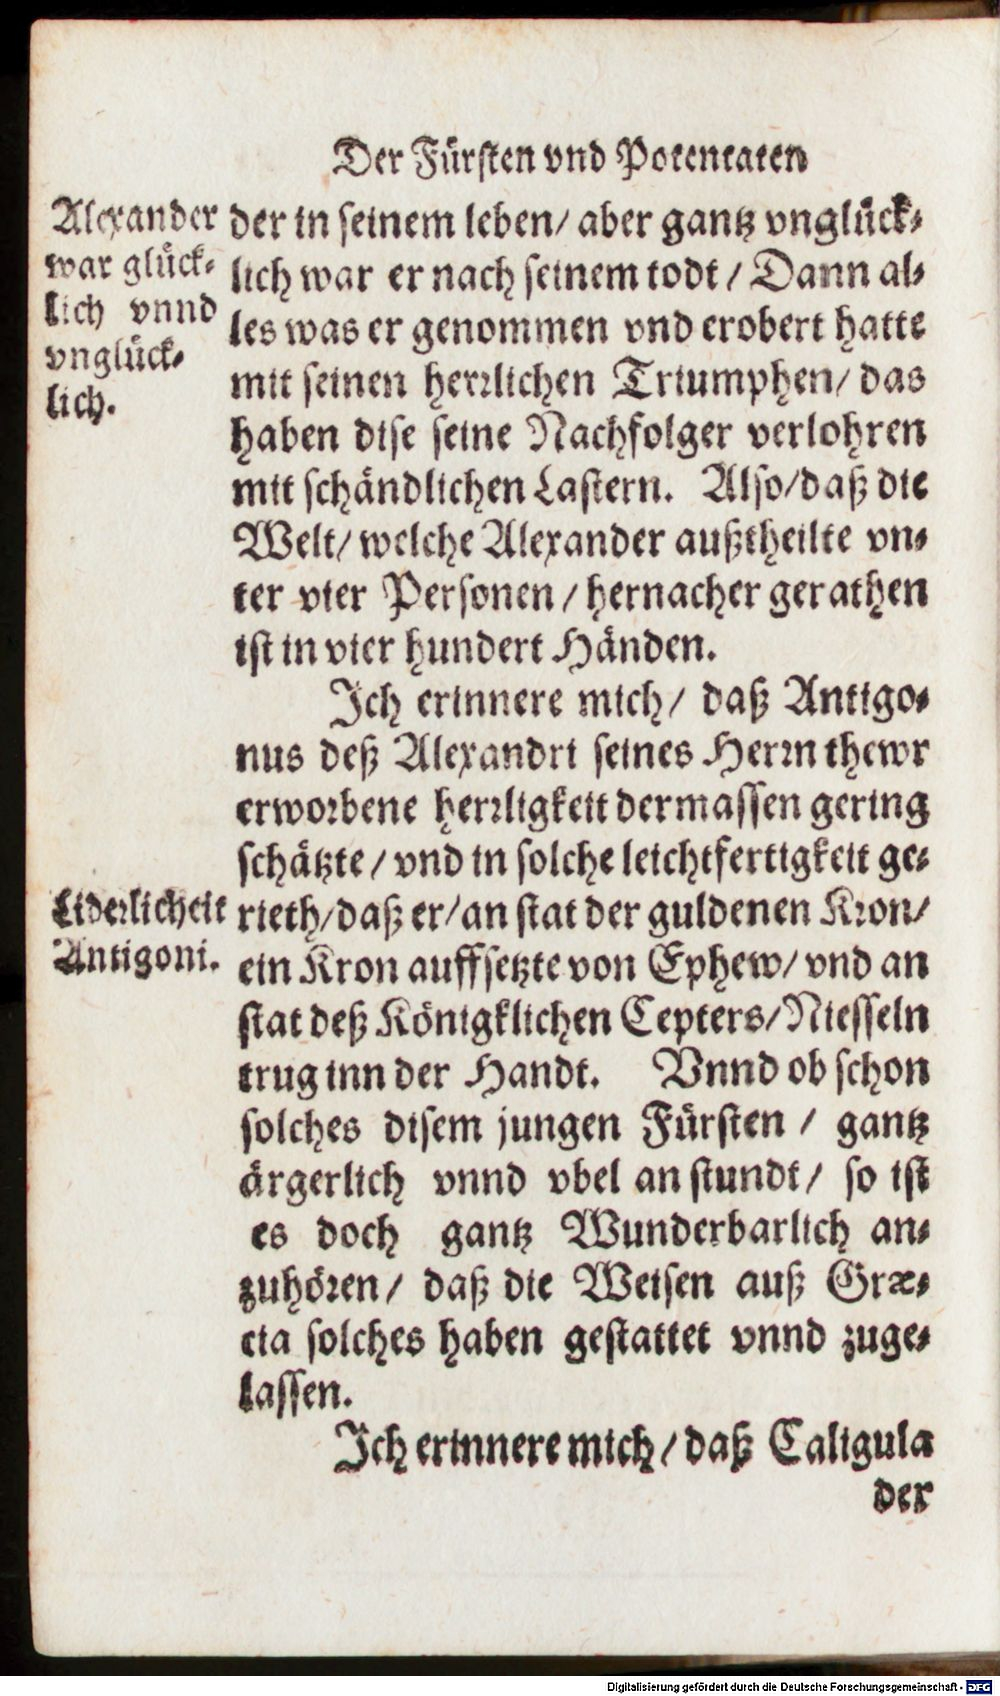 Der Fürsten vnd Potentaten
Alexander
war glück-
lich vnnd
vnglück-
lich.
der in seinem leben/ aber gantz vnglück-
lich war er nach seinem todt / Dann al-
les was er genommen vnd erobert hatte
mit seinen herrlichen Triumphen/ das
haben dise seine Nachfolger verlohren
mit schändlichen Lastern. Also/daß die
Welt/ welche Alexander außtheilte vn-
ter vier Personen / hernacher gerathen
ist in vier hundert Händen.
Ich erinnere mich/ daß Antigo-
nus deß Alexandri seines Herrn thewr
erworbene herrligkeit dermassen gering
schätzte / vnd in solche leichtfertigkeit ge-
Liderlicheit
Antigoni.
rieth/daß er/an stat der guldenen Kron/
ein Kron auffsetzte von Ephew/ vnd an
stat deß Königklichen Cepters/Niesseln
trug inn der Handt. Vnnd ob schon
solches disem jungen Fürsten / gantz
ärgerlich vnnd vbel an stundt/ so ist
es doch gantz Wunderbarlich an-
zuhören/ daß die Weisen auß Græ-
cia solches haben gestattet vnnd zuge-
lassen.
Ich erinnere mich/ daß Caligula
der
Digitalisierung gefördert durch die Deutsche Forschungsgemeinschaft - DFG